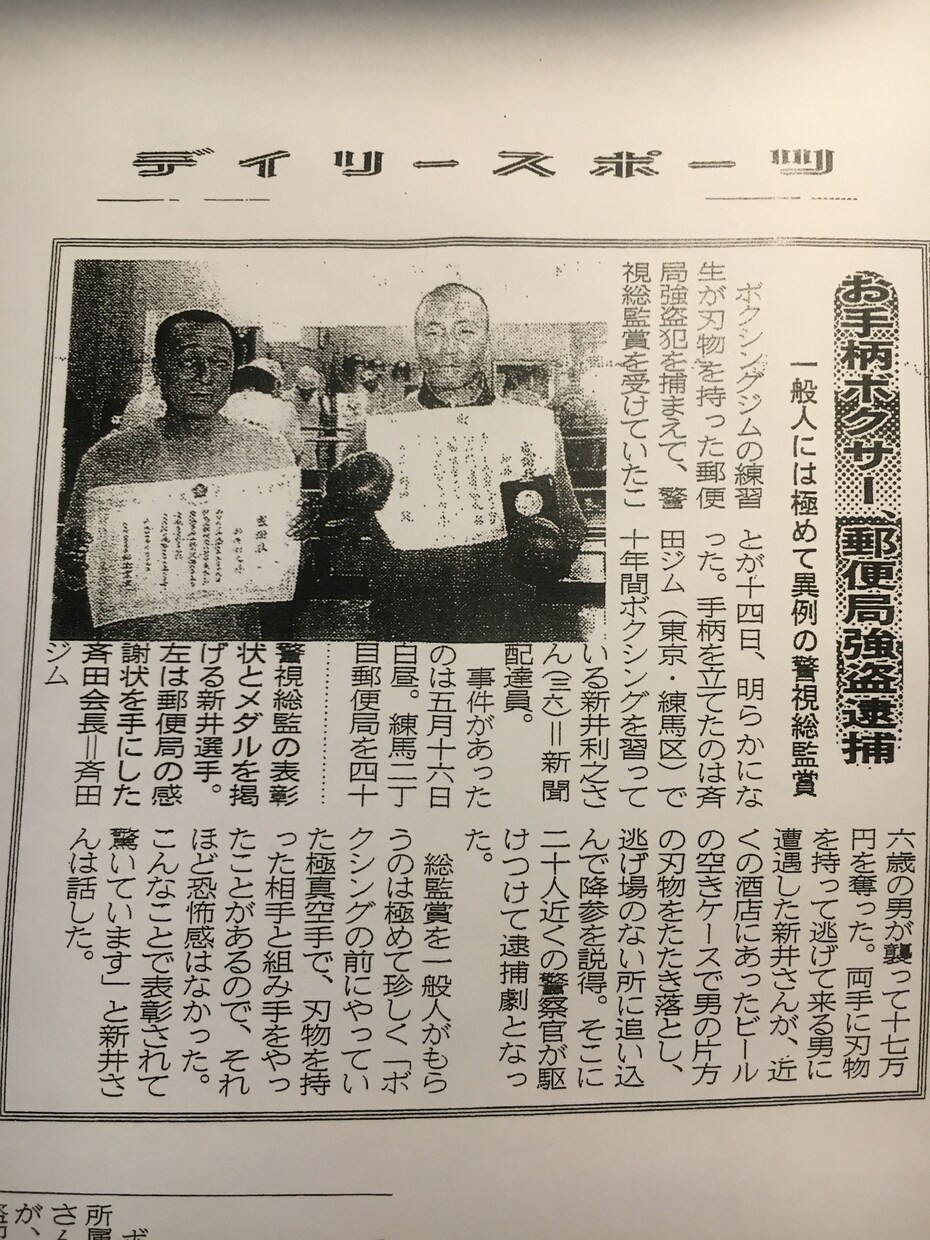 デイリースポーツ
お手柄ボクサー、郵便局強盗逮捕
一般人には極めて異例の警視総監賞
ボクシングジムの練習
生が刃物を持った郵便
局強盗犯を捕まえて、警
視総監賞を受けていたこ
とが十四日、明らかにな
った。手柄を立てたのは斉
田ジム（東京・練馬区）で
十年間ボクシングを習って
いる新井利之さ
ん（三六）＝新聞
配達員。
事件があった
のは五月十六日
白昼。練馬二丁
目郵便局を四十
六歳の男が襲って十七万
円を奪った。両手に刃物
を持って逃げて来る男に
遭遇した新井さんが、近
くの酒店にあったビール
の空きケースで男の片方
の刃物をたたき落とし、
逃げ場のない所に追い込
んで降参を説得。そこに
二十人近くの警察官が駆
けつけて逮捕劇となっ
た。
総監賞を一般人がもら
うのは極めて珍しく「ボ
クシングの前にやってい
た極真空手で、刃物を持
った相手と組み手をやっ
たことがあるので、それ
ほど恐怖感はなかった。
こんなことで表彰されて
驚いています」と新井さ
んは話した。
警視総監の表彰
状とメダルを掲
げる新井選手。
左は郵便局の感
謝状を手にした
斉田会長＝斉田
ジム
感謝状
ボ
所属
さん
が、